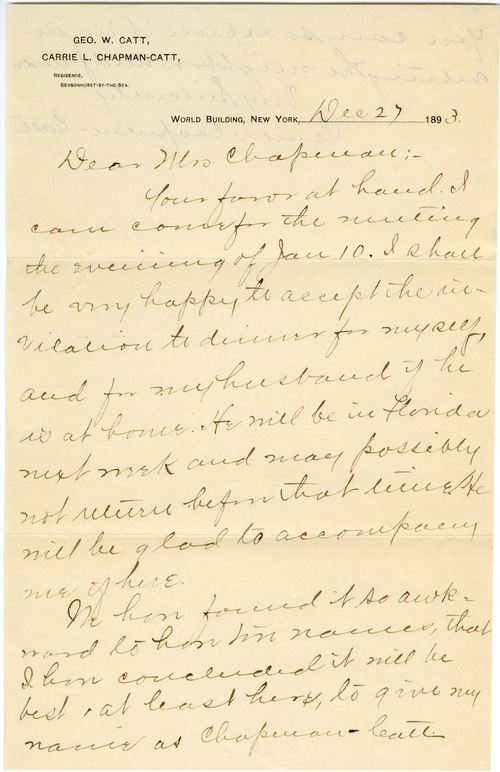 GEO. W. CATT,
CARRIE L. CHAPMAN-CATT,
RESIDENCE,
BENSONHURST-BY-THE-SEA.
WORLD BUILDING, NEW YORK, Dec 27 1893.
Dear Mrs. Chapman:-
Your favor at hand. I
can come for the meeting
the evening of Jan 10. I shall
be very happy to accept the in-
vitation to dinner for myself,
and for my husband if he
is at home. He will be in Florida
next week and may possibly
not return before that time. He
will be glad to accompany
me if here.
We have found it so awk-
ward to have two names, that
I have concluded it will be
best, at least here, to give my
name as Chapman-Catt